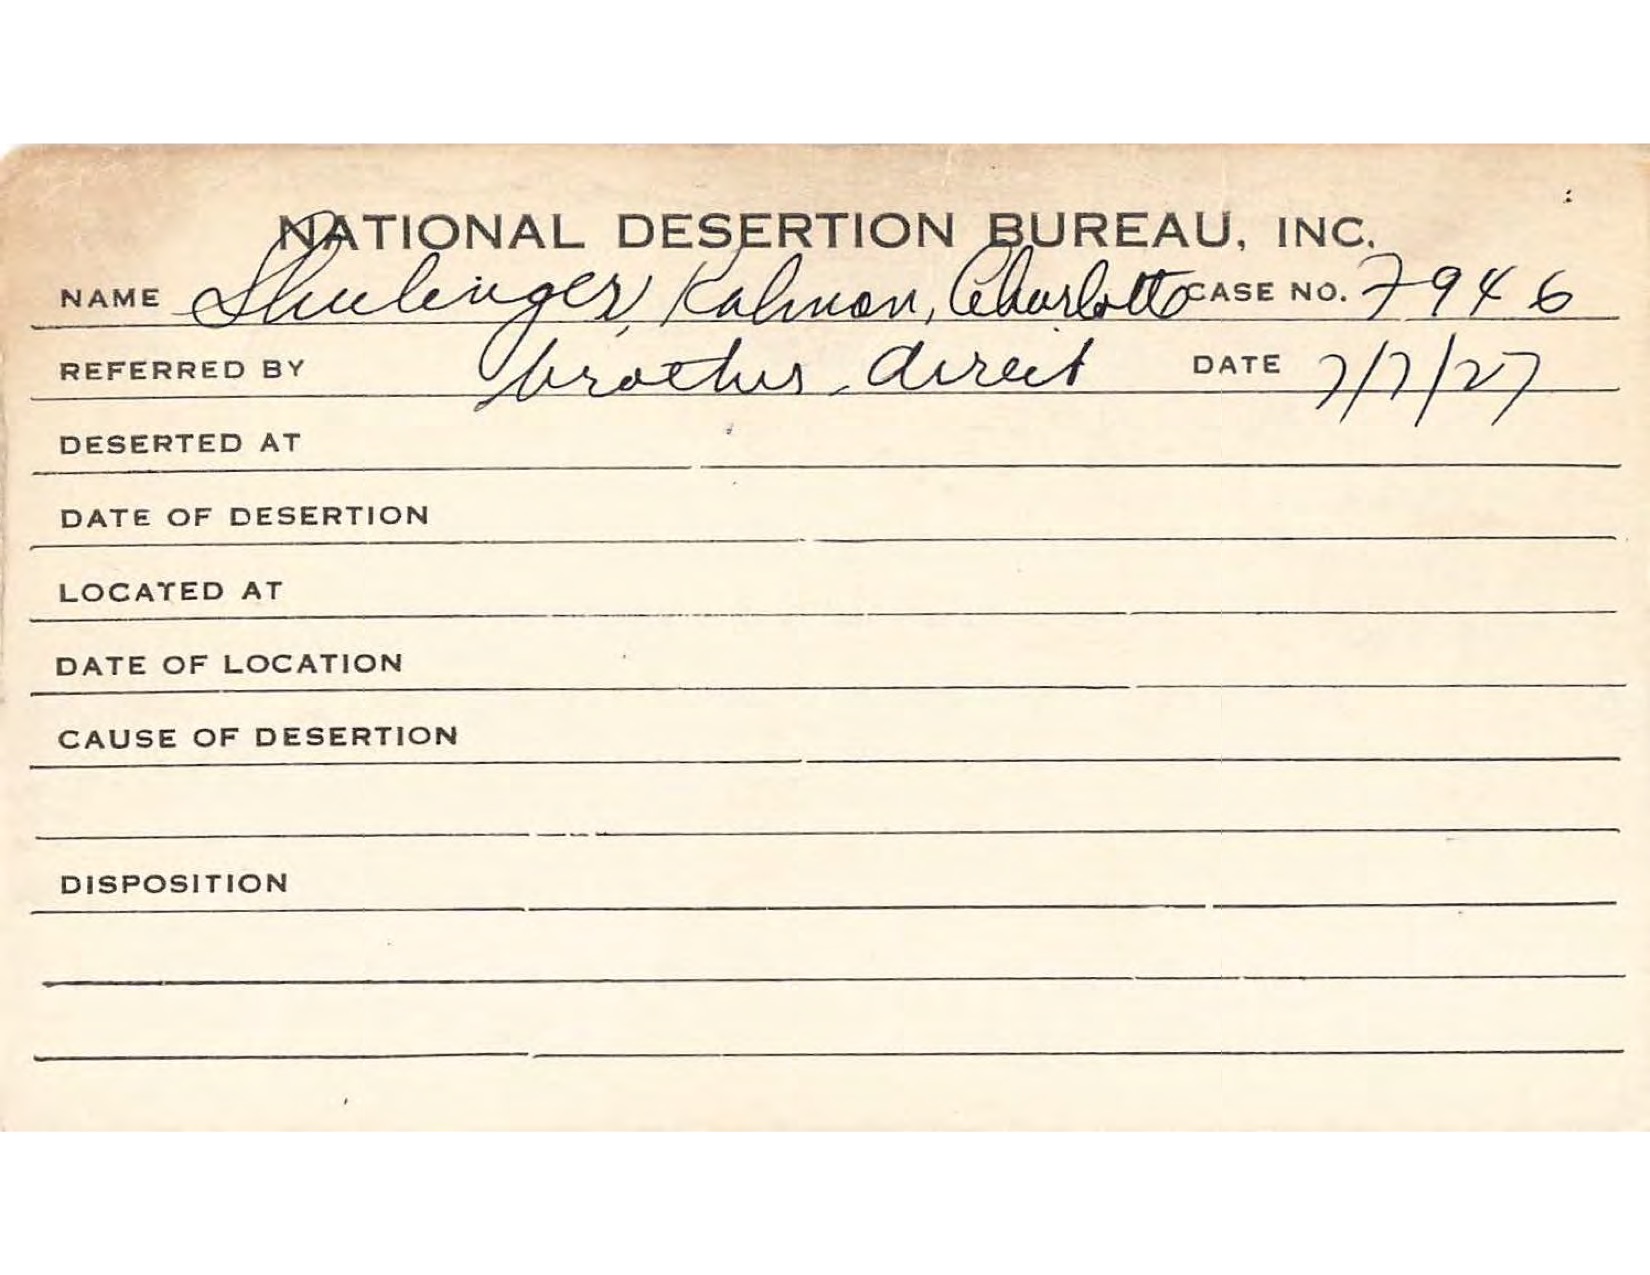 NATIONAL DESERTION BUREAU, INC.
NAME Shulinger, Kalman, Charlotte CASE NO. 7946
REFERRED BY brother, direct DATE 7/7/27
DESERTED AT
DATE OF DESERTION
LOCATED AT
DATE OF LOCATION
CAUSE OF DESERTION
DISPOSITION